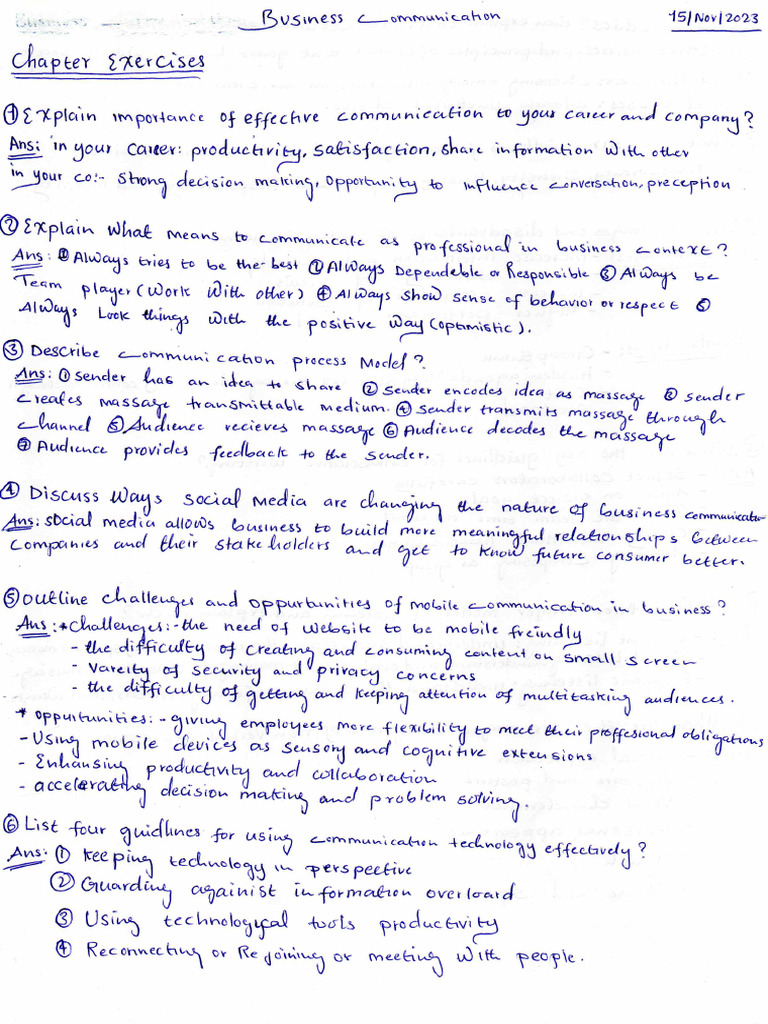 Business Communication
15/Nov/2023
Chapter Exercises
① Explain importance of effective communication to your career and company?
Ans: in your career: productivity, satisfaction, share information with other
in your co:- strong decision making, opportunity to influence conversation, preception
② Explain what means to communicate as professional in business context?
Ans: ① Always tries to be the best ② Always Dependeble or Responsible ③ Always be
Team player (work with other) ④ Always show sense of behavior or respect ⑤
Always Look things with the positive way (optimistic).
③ Describe communication process Model?
Ans: ① sender has an idea to share ② sender encodes idea as massage ③ sender
creates massage transmittable medium. ④ sender transmits massage through
channel ⑤ Audience recieves massage ⑥ Audience decodes the massage
⑦ Audience provides feedback to the sender.
④ Discuss ways social media are changing the nature of business communicatio
Ans: social media allows business to build more meaningful relationships between
companies and their stakeholders and get to know future consumer better.
⑤ outline challenges and oppurtunities of mobile communication in business?
Ans: * challenges:- the need of website to be mobile freindly
- the difficulty of creating and consuming content on small screen
- vareity of security and privacy concerns
- the difficulty of getting and keeping attention of multitasking audiences.
* oppurtunities:- giving employees more flexibility to meet their proffesional obligations
- Using mobile devices as sensory and cognitive extensions
- Enhansing productivity and collaboration
- accelerating decision making and problem solving.
⑥ List four guidlines for using communication technology effectively?
Ans: ① keeping technology in perspective
② Guarding againist information overloard
③ Using technological tools productivity
④ Reconnecting or Rejoining or meeting with people.